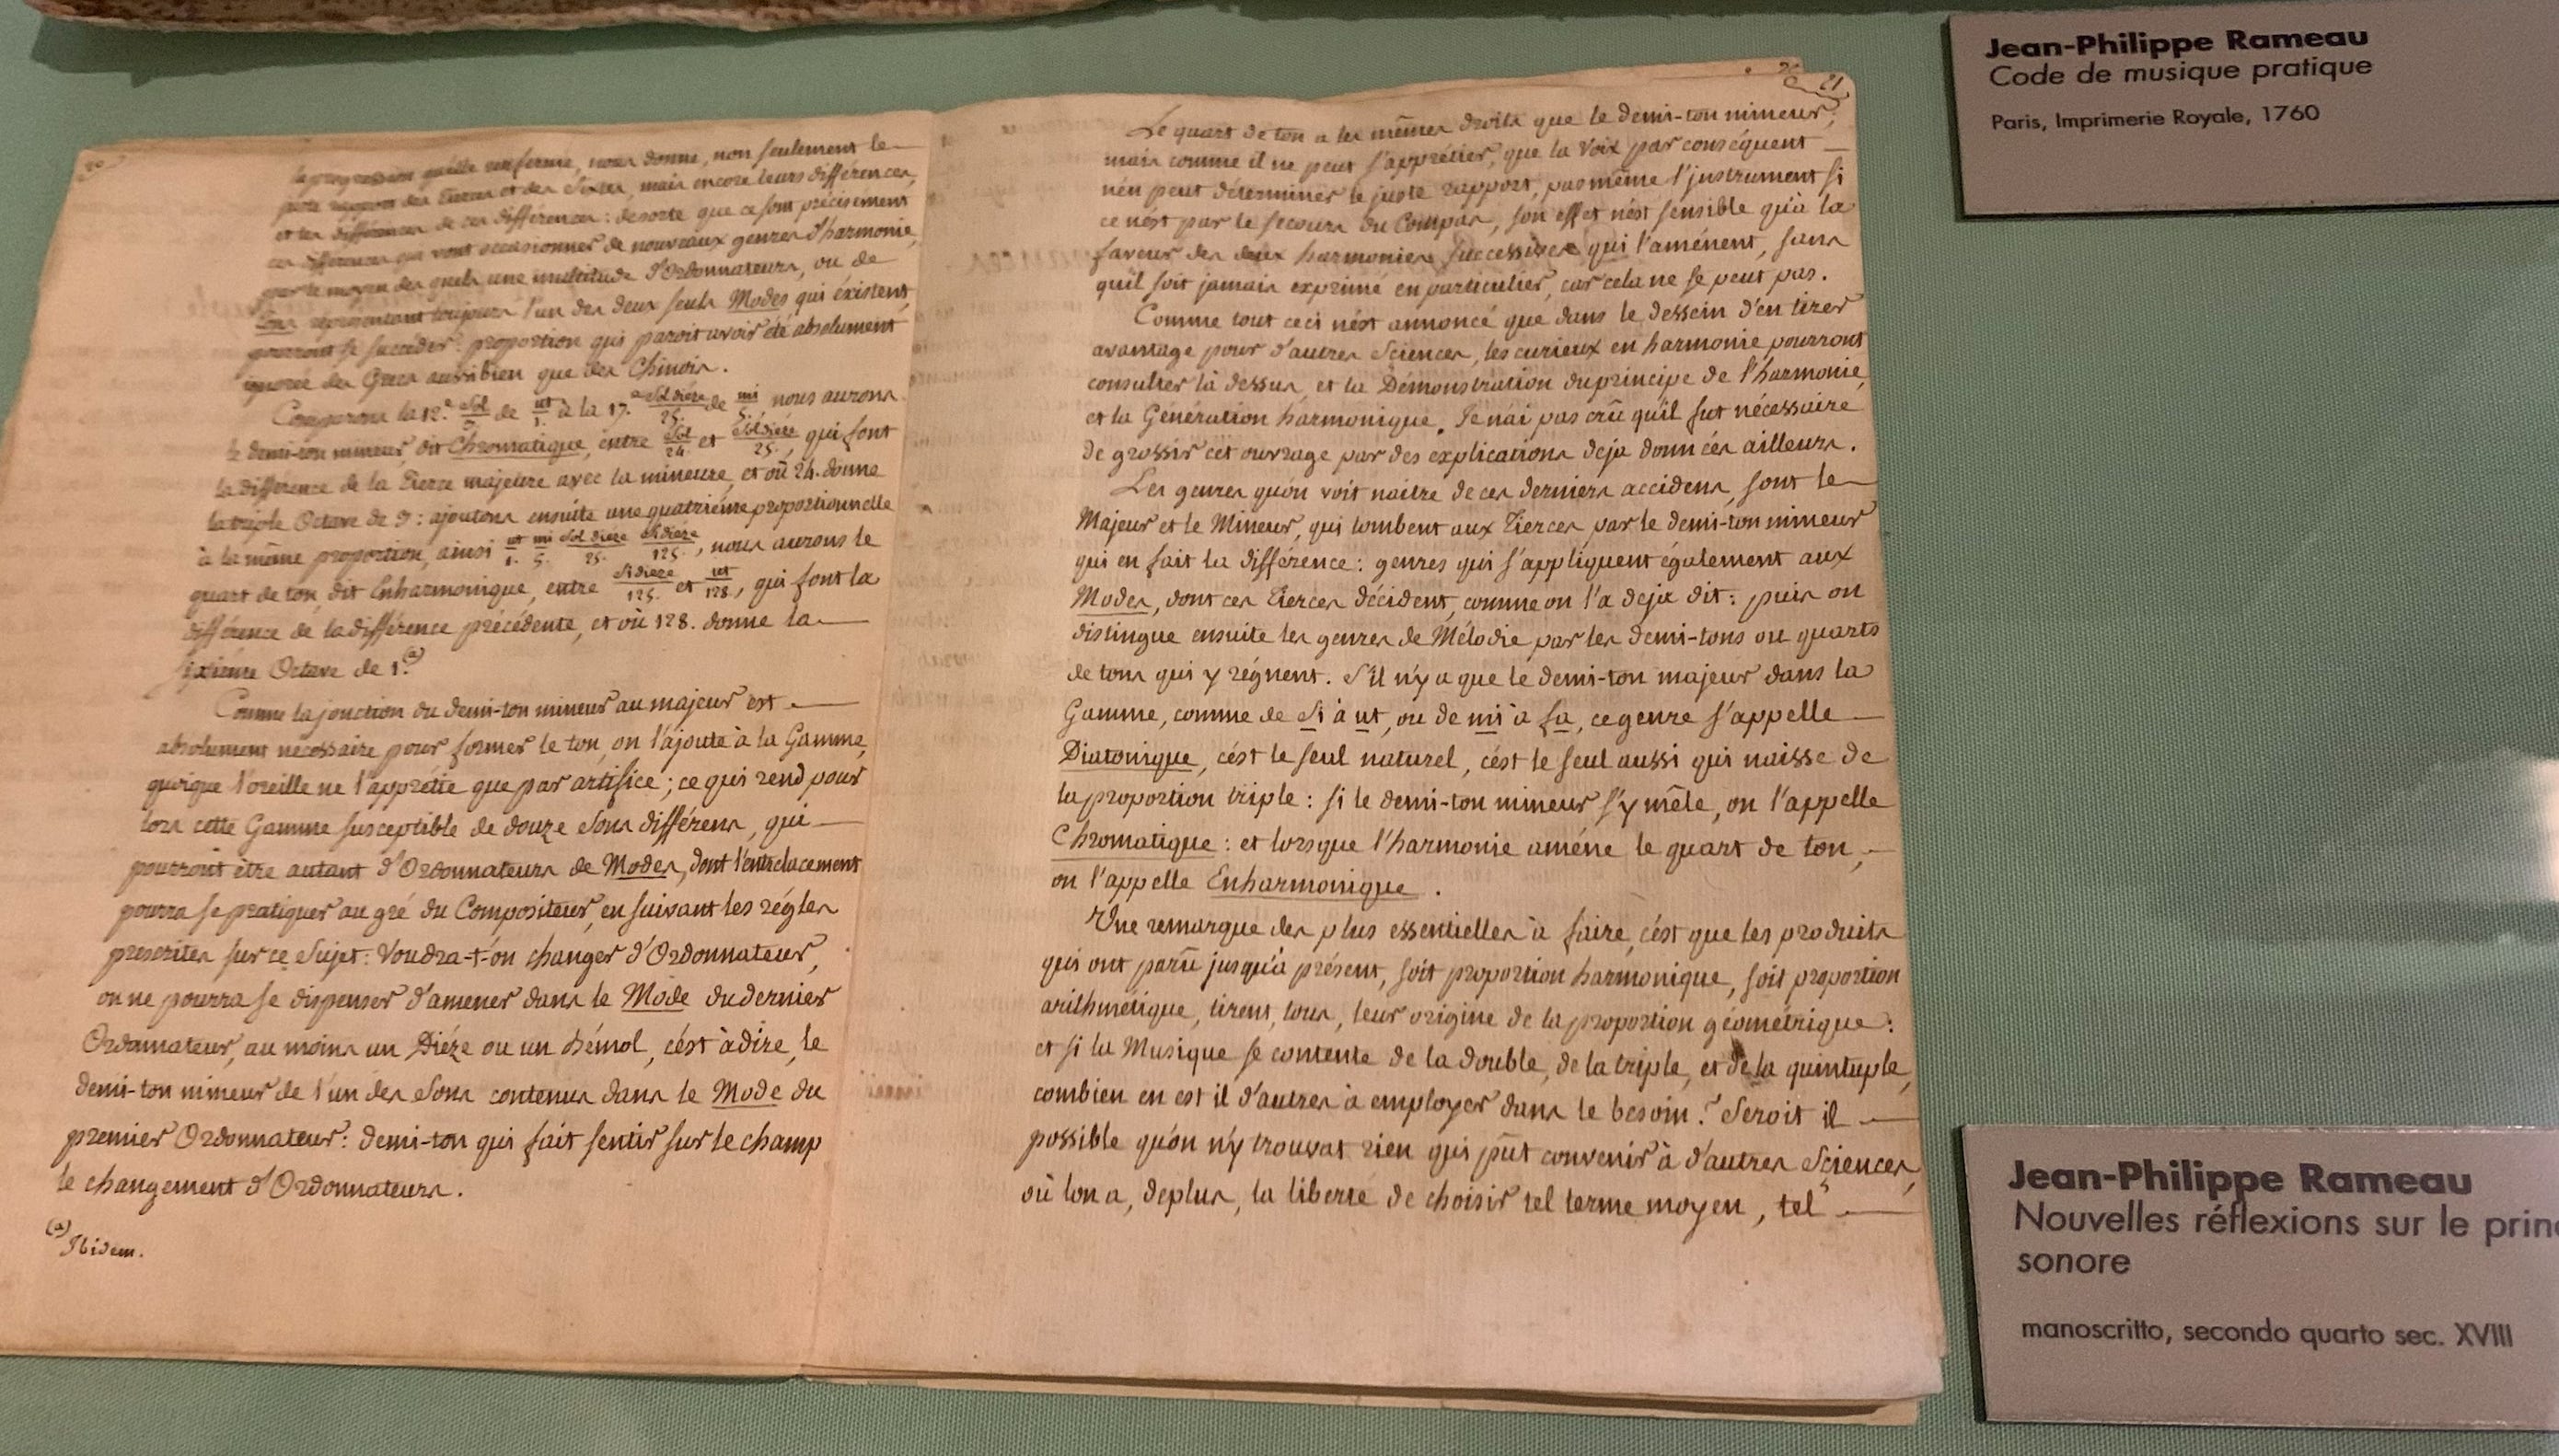 20
la progression qu'elle renferme, nous donne, non seulement le
juste rapport des Tierces et des Sixtes, mais encore leurs différences,
et les différences de ces différences : desorte que ce sont précisément
ces différences qui vont occasionner de nouveaux genres d'harmonie,
par le moyen des quels une multitude d'Ordonnateurs, ou de
Sons représentant toujours l'un des deux seuls Modes qui éxistent,
pourront se succéder : proportion qui paroit avoir été absolument
ignorée des Grecs aussibien que des Chinois.
Comparons la 12.e Sol/3. de ut/1. à la 17.e Sol dièze/25. de mi/5. nous aurons
le demi-ton mineur, dit Chromatique, entre Sol/24. et Sol dièze/25., qui font
la différence de la Tierce majeure avec la mineure, et où 24. donne
la triple Octave de 3 : ajoutons ensuite une quatriéme proportionnelle
à la même proportion, ainsi ut/1. mi/5. Sol dieze/25. Si dièze/125., nous aurons le
quart de ton, dit Enharmonique, entre Si dieze/125. et ut/128., qui font la
différence de la différence précédente, et où 128. donne la
septieme Octave de 1.(a)
Comme la jonction du demi-ton mineur au majeur est
absolument nécessaire pour former le ton, on l'ajoute à la Gamme,
quoique l'oreille ne l'apprétie que par artifice ; ce qui rend pour
lors cette Gamme susceptible de douze Sons différens, qui
pourront être autant d'Ordonnateurs de Modes, dont l'entrelacement
pourra se pratiquer au gré du Compositeur, en suivant les régles
prescrites sur ce Sujet : Voudra-t-on changer d'Ordonnateur,
on ne pourra se dispenser d'amener dans le Mode du dernier
Ordonnateur, au moins un Diéze ou un bémol, c'ést à dire, le
demi-ton mineur de l'un des Sons contenus dans le Mode du
premier Ordonnateur : demi-ton qui fait sentir sur le champ
le changement d'Ordonnateurs.
(a) Ibidem.
21
Le quart de ton a les mêmes droits que le demi-ton mineur ;
mais comme il ne peut s'apprétier, que la Voix par conséquent
n'en peut déterminer le juste rapport, pas même l'jnstrument si
ce n'est par le secours du Compas, son effet n'ést sensible qu'à la
faveur des deux harmonies successives qui l'aménent, sans
qu'il soit jamais exprimé en particulier, car cela ne se peut pas.
Comme tout ceci n'ést annoncé que dans le dessein d'en tirer
avantage pour d'autres Sciences, les curieux en harmonie pourront
consulter là dessus, et la Démonstration du principe de l'harmonie,
et la Génération harmonique. Je n'ai pas crû qu'il fut nécessaire
de grossir cet ouvrage par des explications deja données ailleurs.
Les genres qu'on voit naitre de ces derniers accidens, sont le
Majeur et le Mineur, qui tombent aux Tierces par le demi-ton mineur
qui en fait la différence : genres qui s'appliquent également aux
Modes, dont ces Tierces décident, comme on l'a deja dit : puis on
distingue ensuite les genres de Mélodie par les demi-tons ou quarts
de tons qui y régnent. S'il n'y a que le demi-ton majeur dans la
Gamme, comme de Si à ut, ou de mi à fa, ce genre s'appelle
Diatonique, c'ést le seul naturel, c'ést le seul aussi qui naisse de
la proportion triple : si le demi-ton mineur s'y mêle, on l'appelle
Chromatique : et lorsque l'harmonie améne le quart de ton,
on l'appelle Enharmonique.
Une remarque des plus essentielles à faire, c'ést que les produits
qui ont parû jusqu'à présent, soit proportion harmonique, soit proportion
arithmétique, tirent, tous, leur origine de la proportion géométrique :
et si la Musique se contente de la double, de la triple, et de la quintuple,
combien en est il d'autres à employer dans le besoin ? Seroit il
possible qu'on n'y trouvat rien qui pût convenir à d'autres Sciences,
où l'on a, deplus, la liberté de choisir tel terme moyen, tel
Jean-Philippe Rameau
Code de musique pratique
Paris, Imprimerie Royale, 1760
Jean-Philippe Rameau
Nouvelles réflexions sur le prin
sonore
manoscritto, secondo quarto sec. XVIII